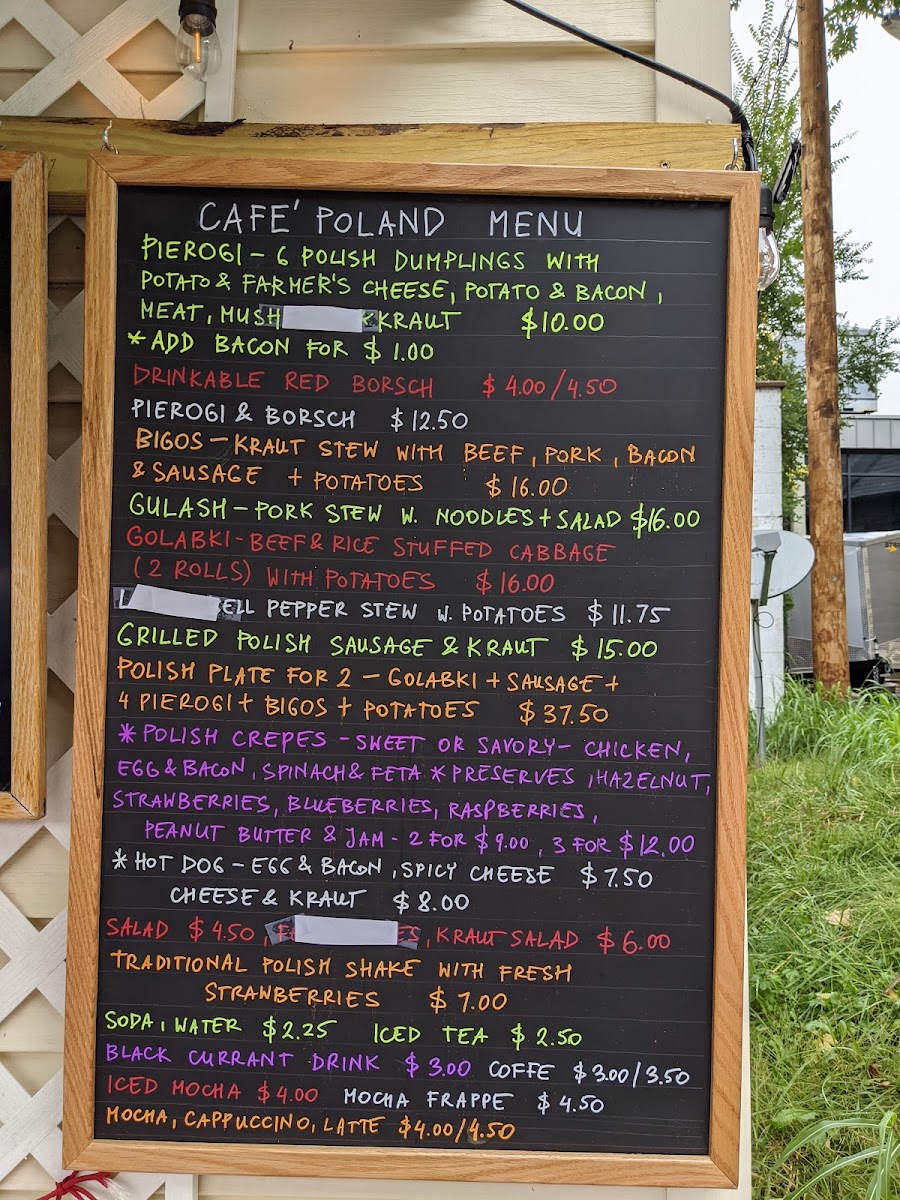 CAFE' POLAND MENU
PIEROGI - 6 POLISH DUMPLINGS WITH
POTATO & FARMER'S CHEESE, POTATO & BACON,
MEAT, MUSH KRAUT $10.00
* ADD BACON FOR $1.00
DRINKABLE RED BORSCH $4.00/4.50
PIEROGI & BORSCH $12.50
BIGOS - KRAUT STEW WITH BEEF, PORK, BACON
& SAUSAGE + POTATOES $16.00
GULASH - PORK STEW W. NOODLES + SALAD $16.00
GOLABKI - BEEF & RICE STUFFED CABBAGE
(2 ROLLS) WITH POTATOES $16.00
ELL PEPPER STEW W. POTATOES $11.75
GRILLED POLISH SAUSAGE & KRAUT $15.00
POLISH PLATE FOR 2 - GOLABKI + SAUSAGE +
4 PIEROGI + BIGOS + POTATOES $37.50
* POLISH CREPES - SWEET OR SAVORY - CHICKEN,
EGG & BACON, SPINACH & FETA * PRESERVES, HAZELNUT,
STRAWBERRIES, BLUEBERRIES, RASPBERRIES,
PEANUT BUTTER & JAM - 2 FOR $9.00, 3 FOR $12.00
* HOT DOG - EGG & BACON, SPICY CHEESE $7.50
CHEESE & KRAUT $8.00
SALAD $4.50, ES, KRAUT SALAD $6.00
TRADITIONAL POLISH SHAKE WITH FRESH
STRAWBERRIES $7.00
SODA, WATER $2.25 ICED TEA $2.50
BLACK CURRANT DRINK $3.00 COFFE $3.00/3.50
ICED MOCHA $4.00 MOCHA FRAPPE $4.50
MOCHA, CAPPUCCINO, LATTE $4.00/4.50